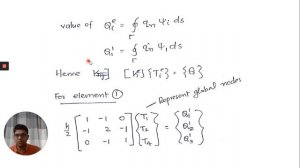 value of Q₁ᵉ = ∮ qₙ ψᵢ ds
Γ
Qᵢ¹ = ∮ qₙ ψᵢ ds
Γ
Hence [K]{Tᵢ¹} = {Q}
For element ① Represent global nodes
k/2 [1 -1 0; -1 2 -1; 0 -1 1] {T₁; T₂; T₄} = {Q₁¹; Q₂¹; Q₃¹}